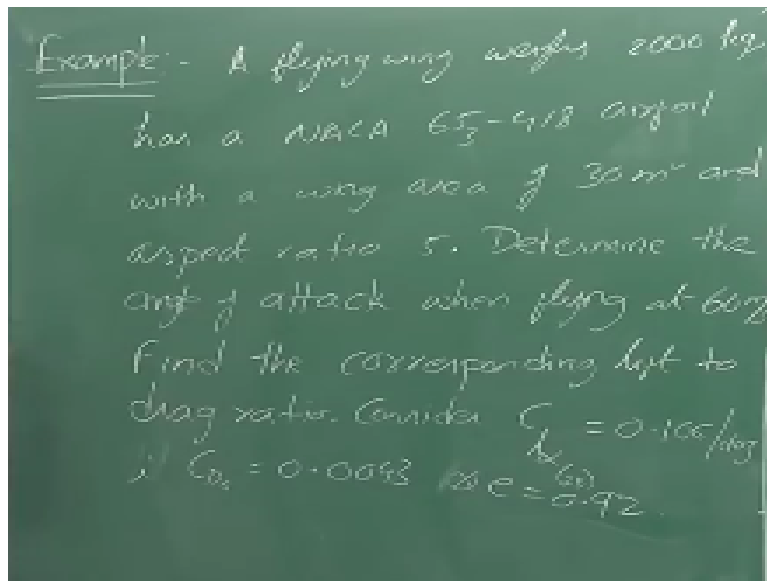 Example:- A flying wing weighs 2000 kg
has a NACA 65₃-418 airfoil
with a wing area of 30 m² and
aspect ratio 5. Determine the
angle of attack when flying at 60 m
Find the corresponding lift to
drag ratio. Consider C = 0.106/deg
C_D₀ = 0.0043 e = 0.92.